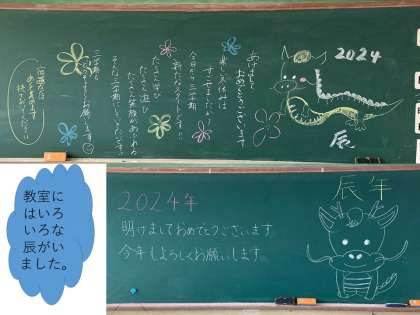 2024
辰
あけまして
おめでとうございます
楽しい冬休みは
すごせましたか?
今日から三学期
新たなスタートです!!
たくさん学び
たくさん遊び
たくさん笑顔があふれる
そんな三学期にしていきたいです
三学期も
よろしくお願いします
教室に
はいろ
いろな
辰がい
ました。
2024年
明けましておめでとうございます
今年もよろしくお願いします
辰年